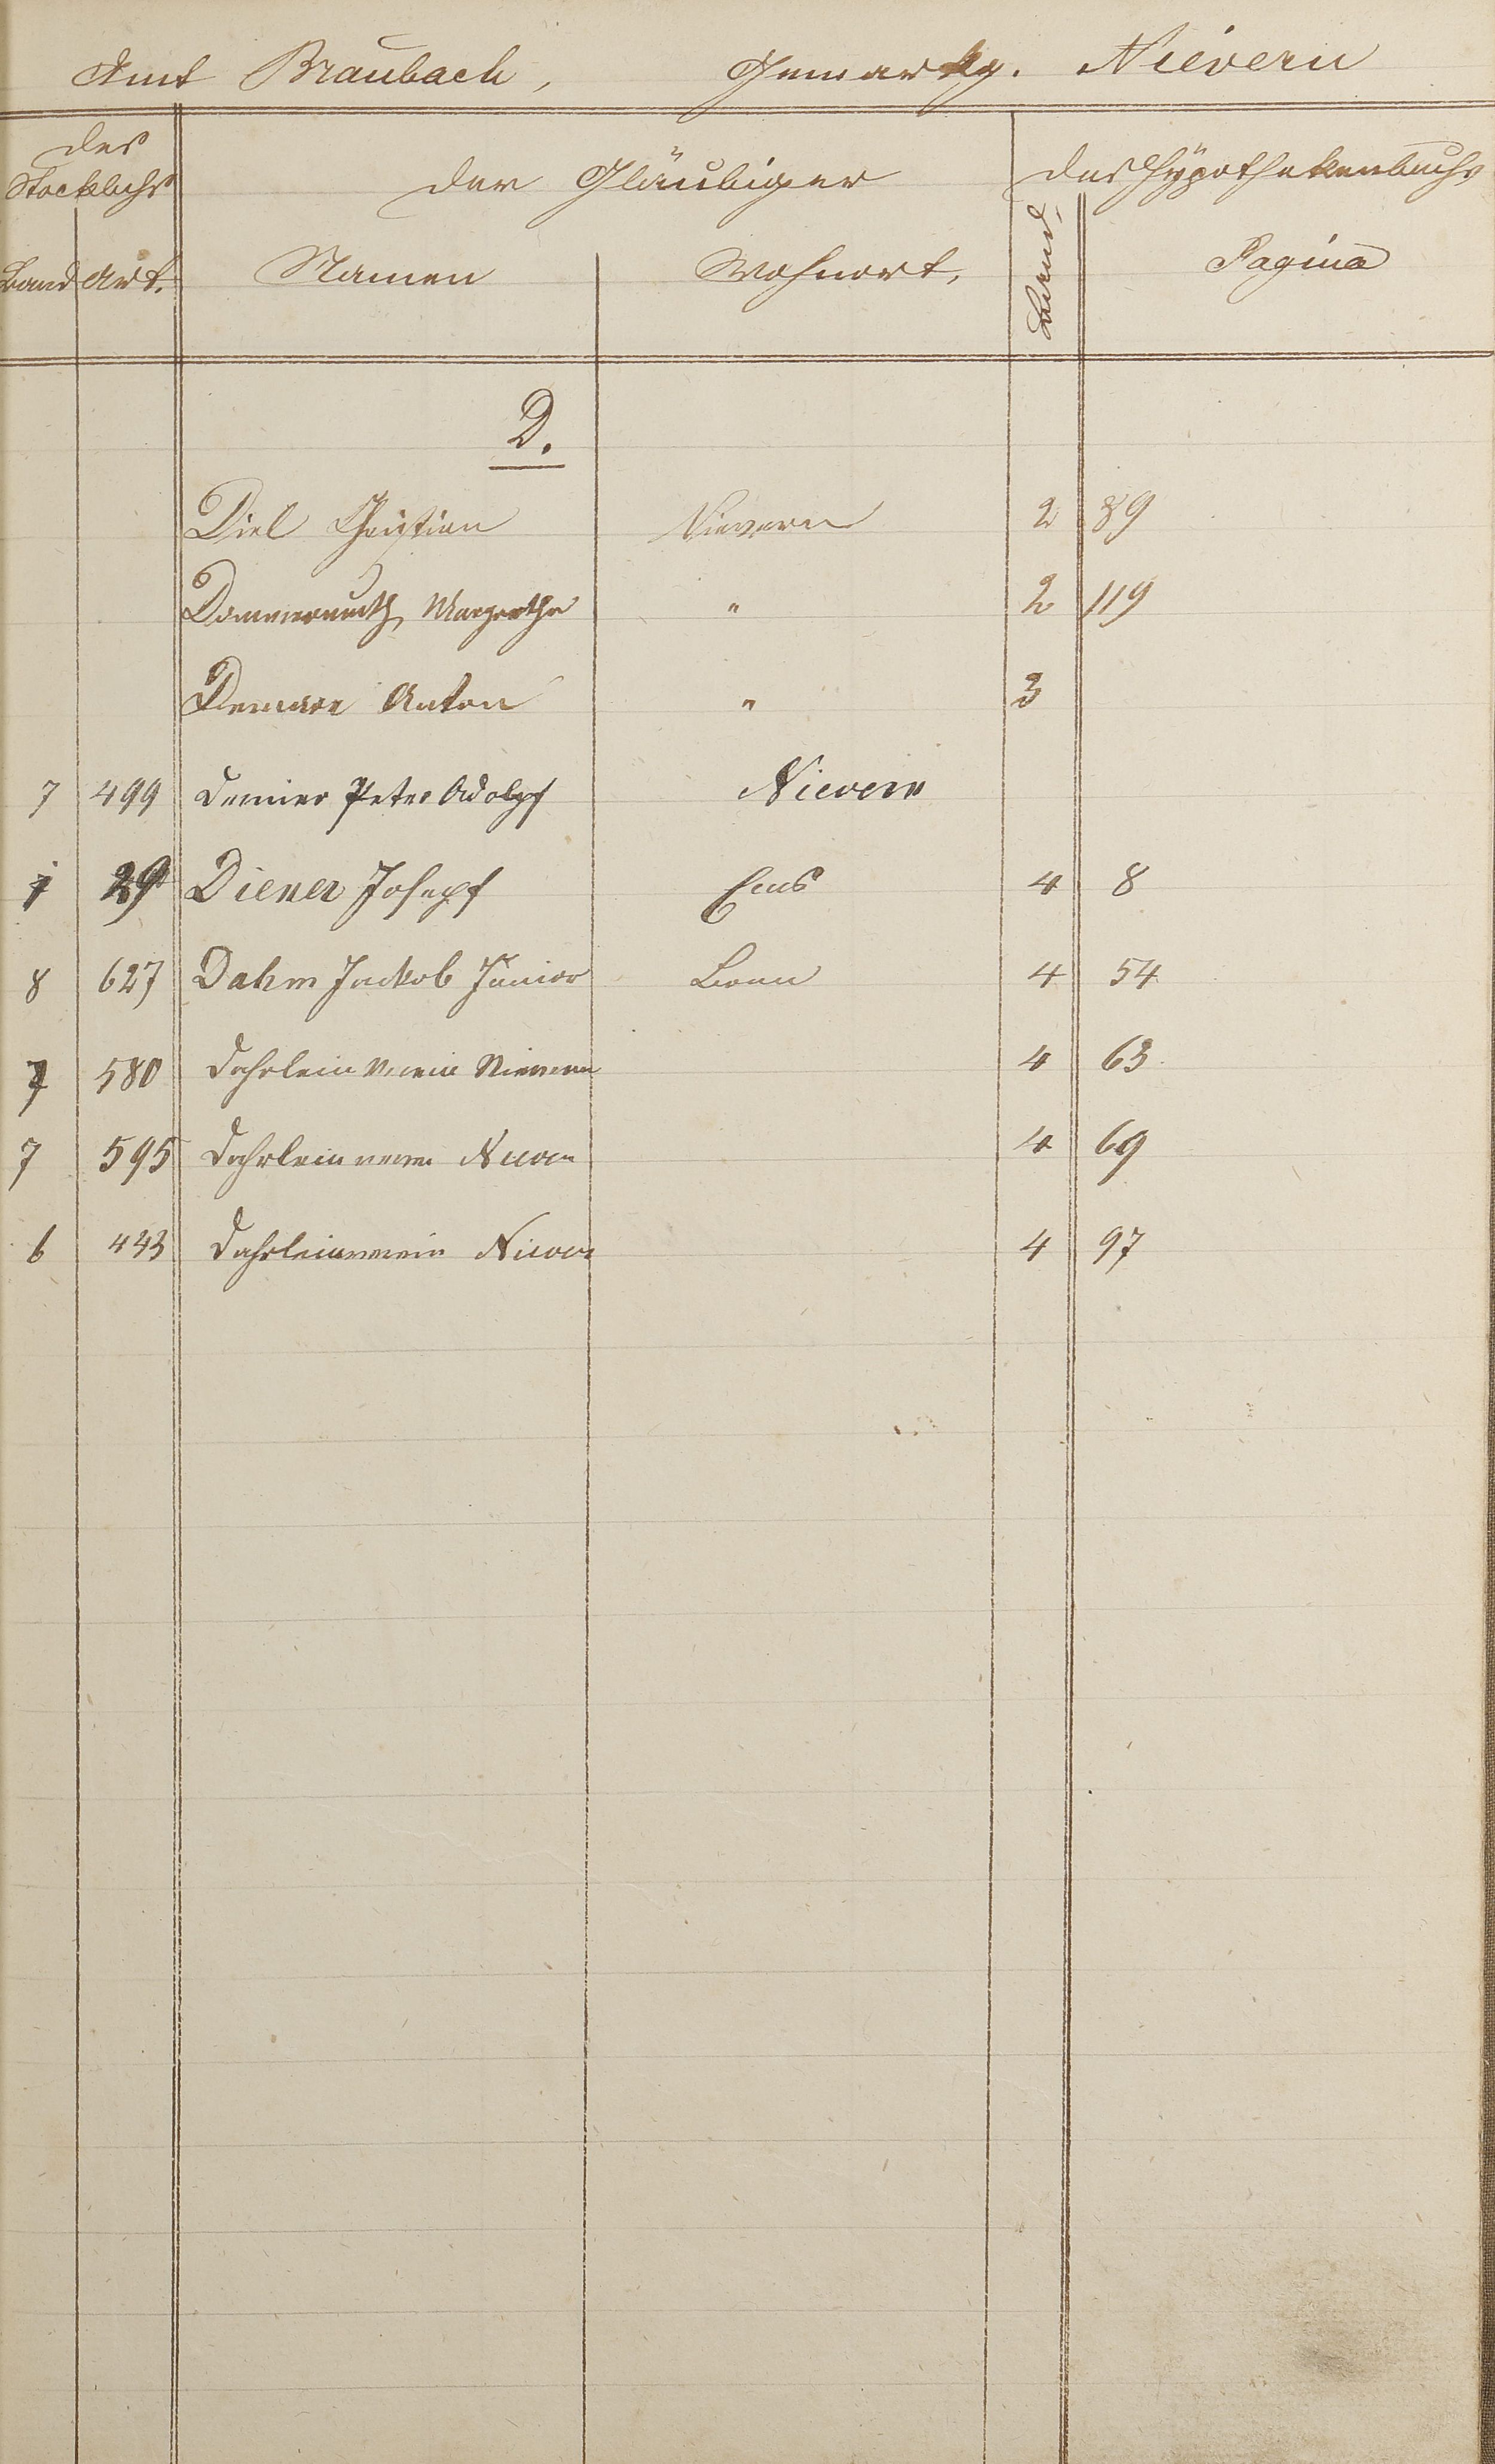 Amt Braubach, Gemarkg. Nievern
des Stockbchs der Gläubiger des Hÿpothekenbuchs
Band Art. Namen Wohnort, Band, Pagina
D.
Diel Christian Nievern 2 89
Margrethe " 2 119
Anton " 3
7 499 Peter Adolph Nievern
29 Diener Joseph Ems 4 8
8 627 Dahm Jackob Junior Bonn 4 54
7 580 Dahrlein Verein Nievern 4 63
7 595 Dahrleinverein Nievern 4 69
6 433 Dahrleinverein Nievern 4 97